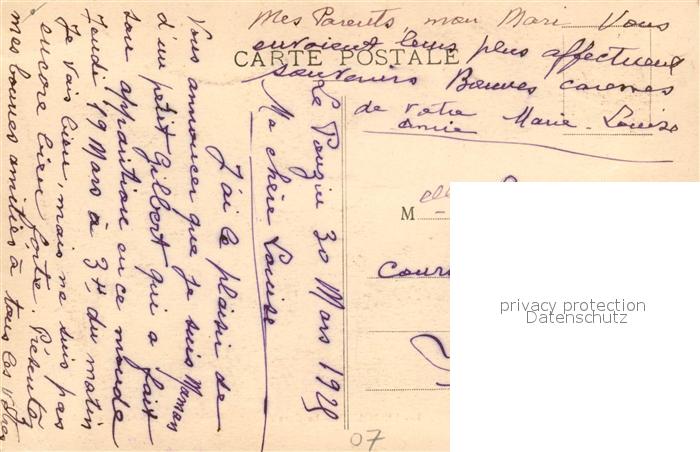 Le Pouzin 30 Mars 1925
Ma chère Louise
J'ai le plaisir de
vous annoncer que je suis Maman
d'un petit Gilbert qui a fait
son apparition en ce monde
Jeudi 19 Mars à 3h du matin
Je vais bien, mais ne suis pas
encore bien forte. Présentez
mes bonnes amitiés à tous les vôtres
Mes Parents, mon Mari Vous
envoient leurs plus affectueux
souvenirs Bonnes caresses
de votre
amie Marie-Louise
CARTE POSTALE
M elle
Cours
07
privacy protection
Datenschutz